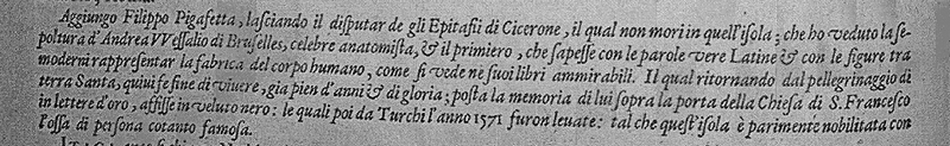 Aggiungo Filippo Pigafetta, lasciando il disputar de gli Epitafii di Cicerone, il qual non morì in quell'isola; che ho veduto la se-
poltura d'Andrea VVessalio di Bruselles, celebre anatomista, & il primiero, che sapesse con le parole vere Latine & con le figure tra
moderni rappresentar la fabrica del corpo humano, come si vede ne suoi libri ammirabili. Il qual ritornando dal pellegrinaggio di
terra Santa, quiui fe fine di viuere, gia pien d'anni & di gloria; posta la memoria di lui sopra la porta della Chiesa di S. Francesco
in lettere d'oro, affisse in veluto nero: le quali poi da Turchi l'anno 1571 furon leuate: tal che quest'isola è parimente nobilitata con
l'ossa di persona cotanto famosa.